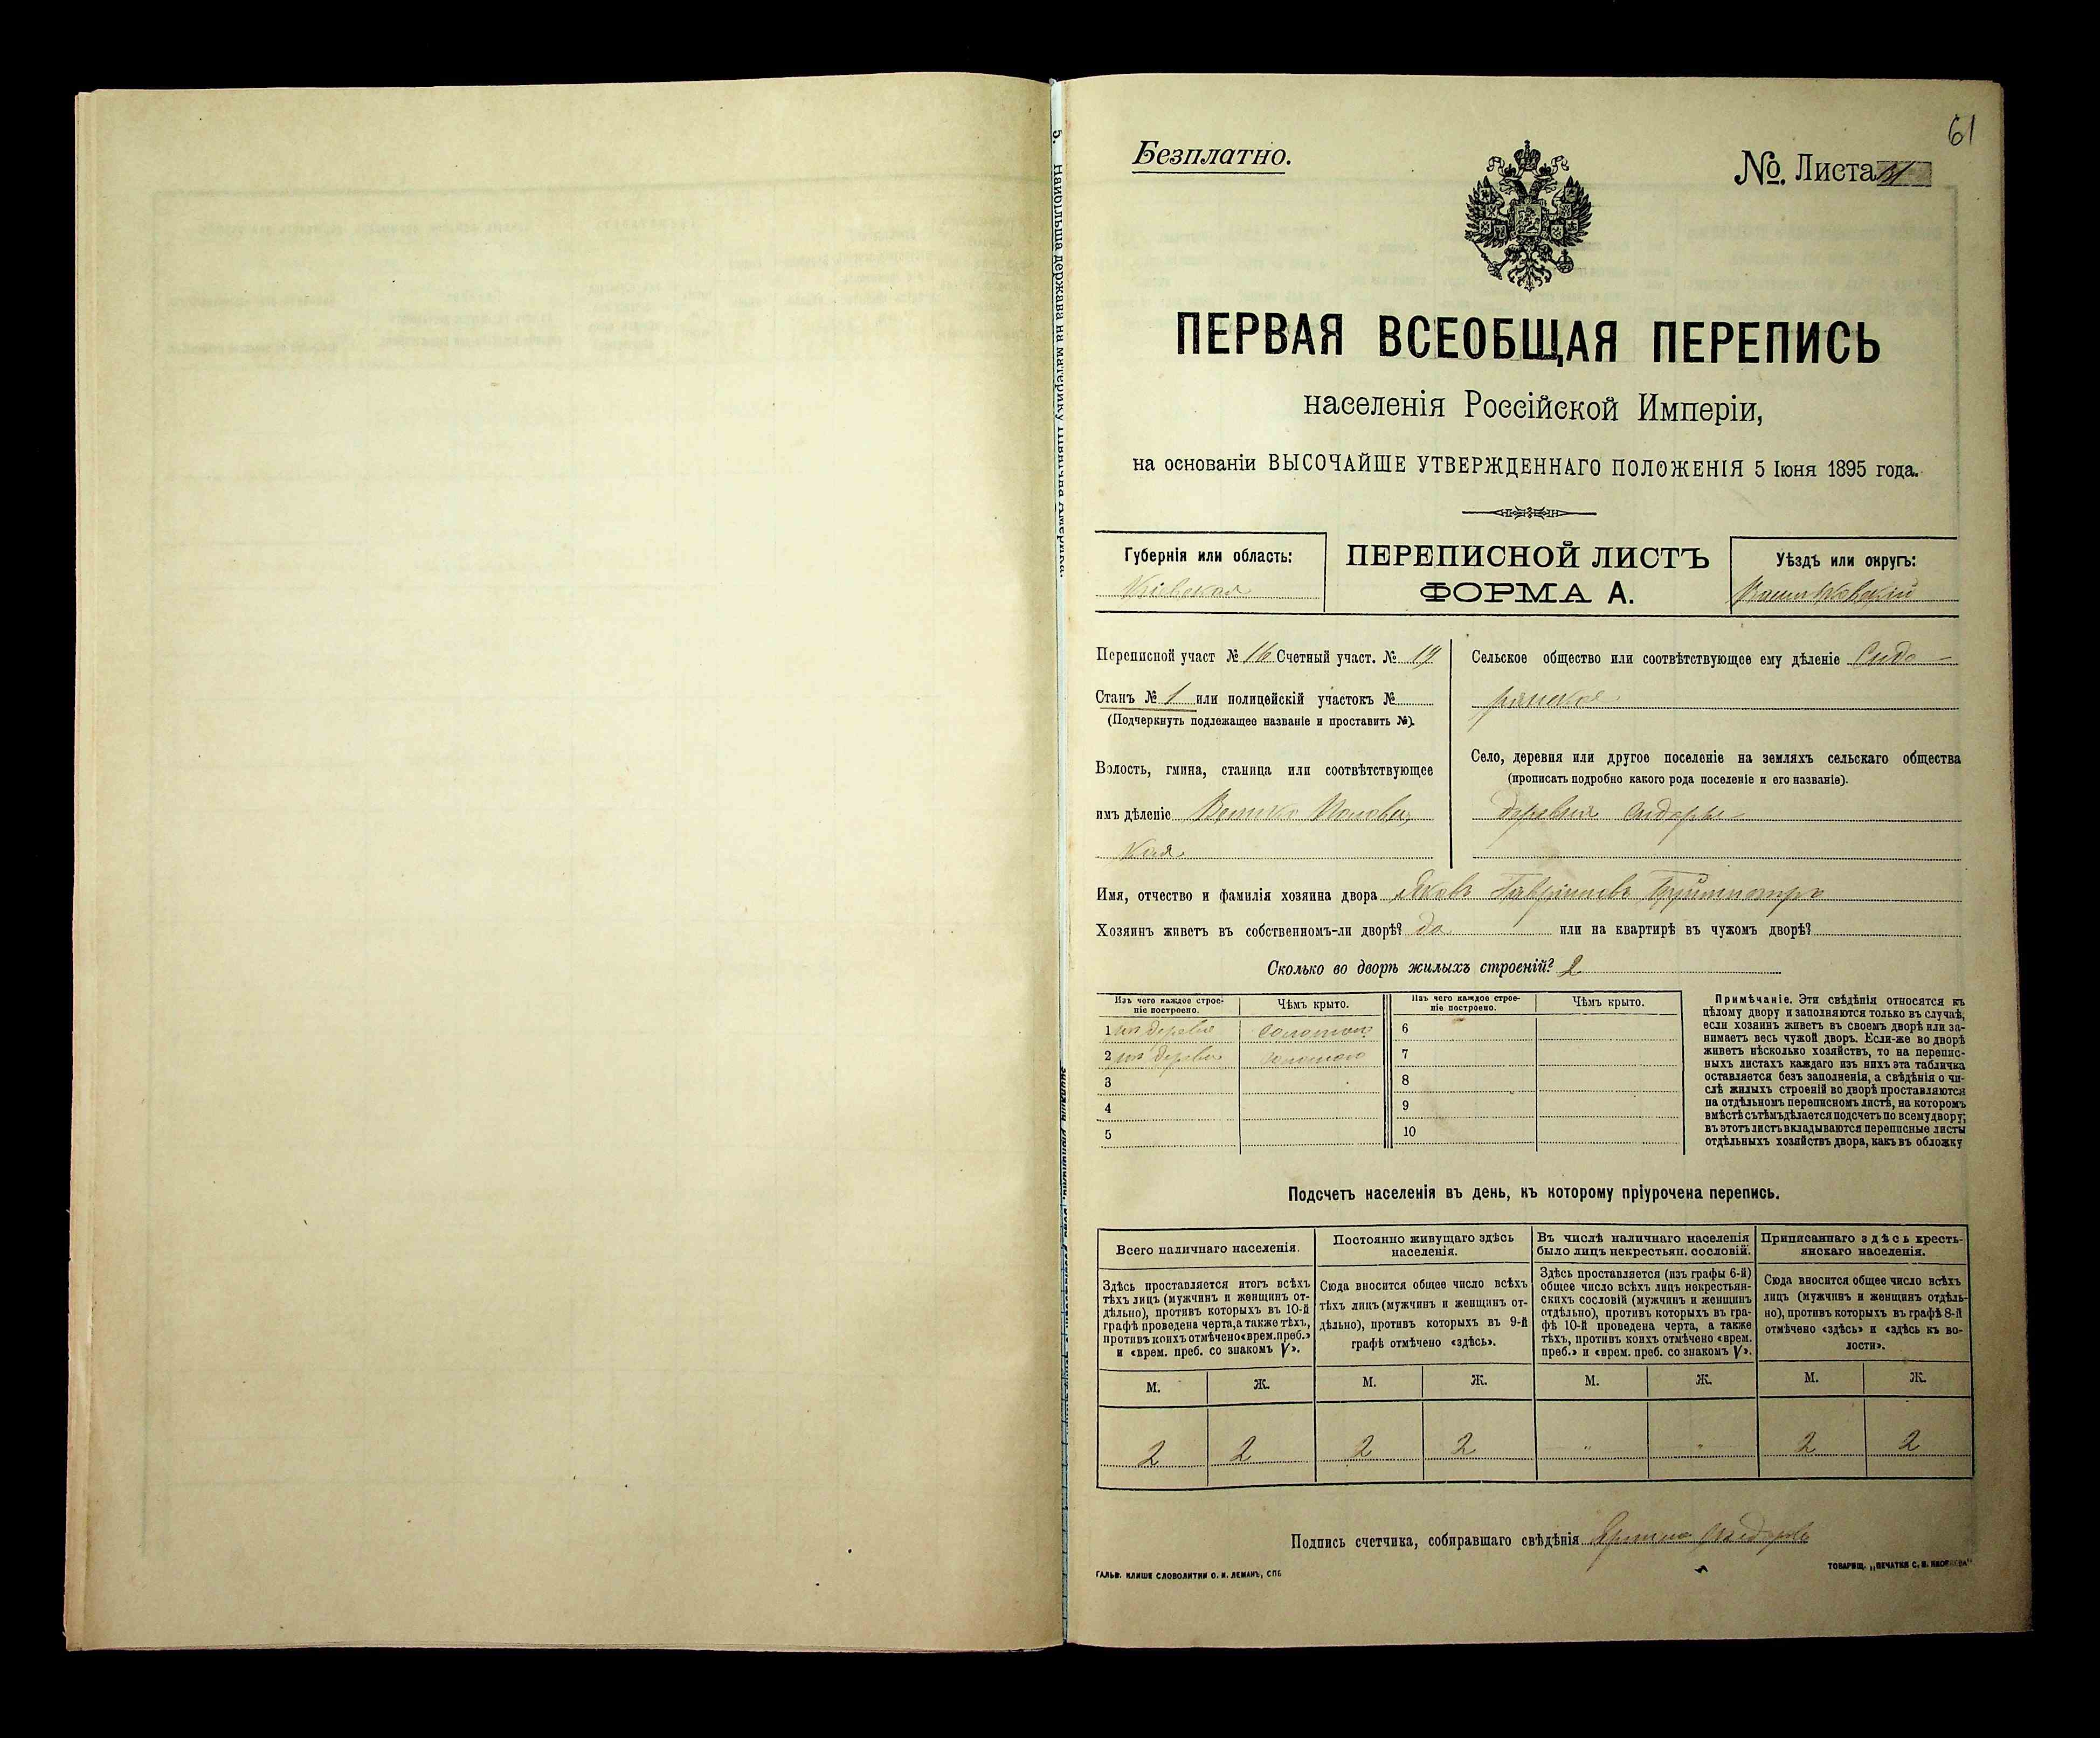 5. Найбільша держава на материку Північна Америка.
61
Безплатно.
№. Листа
ПЕРВАЯ ВСЕОБЩАЯ ПЕРЕПИСЬ
населенія Россійской Имперіи,
на основаніи ВЫСОЧАЙШЕ УТВЕРЖДЕННАГО ПОЛОЖЕНІЯ 5 Іюня 1895 года.
Губернія или область:
Кіевская
ПЕРЕПИСНОЙ ЛИСТЪ
ФОРМА А.
Уѣздъ или округъ:
Переписной участ № 16 Счетный участ. № 19
Станъ № 1 или полицейскій участокъ №
(Подчеркнуть подлежащее названіе и проставить №).
Волость, гмина, станица или соотвѣтствующее
имъ дѣленіе Велико Полове
кая
Сельское общество или соотвѣтствующее ему дѣленіе Сидо-
рянское
Село, деревня или другое поселеніе на земляхъ сельскаго общества
(прописать подробно какого рода поселеніе и его названіе).
деревня Сидоры
Имя, отчество и фамилія хозяина двора Яковъ Гавриловъ
Хозяинъ живетъ въ собственномъ-ли дворѣ? да или на квартирѣ въ чужомъ дворѣ?
Сколько во дворѣ жилыхъ строеній? 2
Изъ чего каждое строе-
ніе построено.
Чѣмъ крыто.
Изъ чего каждое строе-
ніе построено.
Чѣмъ крыто.
1 изъ дерева соломою 6
2 изъ дерева соломою 7
3 8
4 9
5 10
Примѣчаніе. Эти свѣдѣнія относятся къ
цѣлому двору и заполняются только въ случаѣ,
если хозяинъ живетъ въ своемъ дворѣ или за-
нимаетъ весь чужой дворъ. Если-же во дворѣ
живетъ нѣсколько хозяйствъ, то на перепис-
ныхъ листахъ каждаго изъ нихъ эта табличка
оставляется безъ заполненія, а свѣдѣнія о чи-
слѣ жилыхъ строеній во дворѣ проставляются
на отдѣльномъ переписномъ листѣ, на которомъ
вмѣстѣ съ тѣмъ дѣлается подсчетъ по всему двору;
въ этотъ листъ вкладываются переписные листы
отдѣльныхъ хозяйствъ двора, какъ въ обложку
Подсчетъ населенія въ день, къ которому пріурочена перепись.
Всего наличнаго населенія.
Здѣсь проставляется итогъ всѣхъ
тѣхъ лицъ (мужчинъ и женщинъ от-
дѣльно), противъ которыхъ въ 10-й
графѣ проведена черта, а также тѣхъ,
противъ коихъ отмѣчено «врем. преб.»
и «врем. преб. со знакомъ V».
Постоянно живущаго здѣсь
населенія.
Сюда вносится общее число всѣхъ
тѣхъ лицъ (мужчинъ и женщинъ от-
дѣльно), противъ которыхъ въ 9-й
графѣ отмѣчено «здѣсь».
Въ числѣ наличнаго населенія
было лицъ некрестьян. сословій.
Здѣсь проставляется (изъ графы 6-й)
общее число всѣхъ лицъ некрестьян-
скихъ сословій (мужчинъ и женщинъ
отдѣльно), противъ которыхъ въ гра-
фѣ 10-й проведена черта, а также
тѣхъ, противъ коихъ отмѣчено «врем.
преб.» и «врем. преб. со знакомъ V».
Приписаннаго здѣсь кресть-
янскаго населенія.
Сюда вносится общее число всѣхъ
лицъ (мужчинъ и женщинъ отдѣль-
но), противъ которыхъ въ графѣ 8-й
отмѣчено «здѣсь» и «здѣсь къ во-
лости».
М. Ж. М. Ж. М. Ж. М. Ж.
2 2 2 2 " " 2 2
Подпись счетчика, собиравшаго свѣдѣнія
ГАЛЬВ. КЛИШЕ СЛОВОЛИТНИ О. И. ЛЕМАНЪ, СПБ
ТОВАРИЩ. „ПЕЧАТНЯ С. П. ЯКОВЛЕВА"